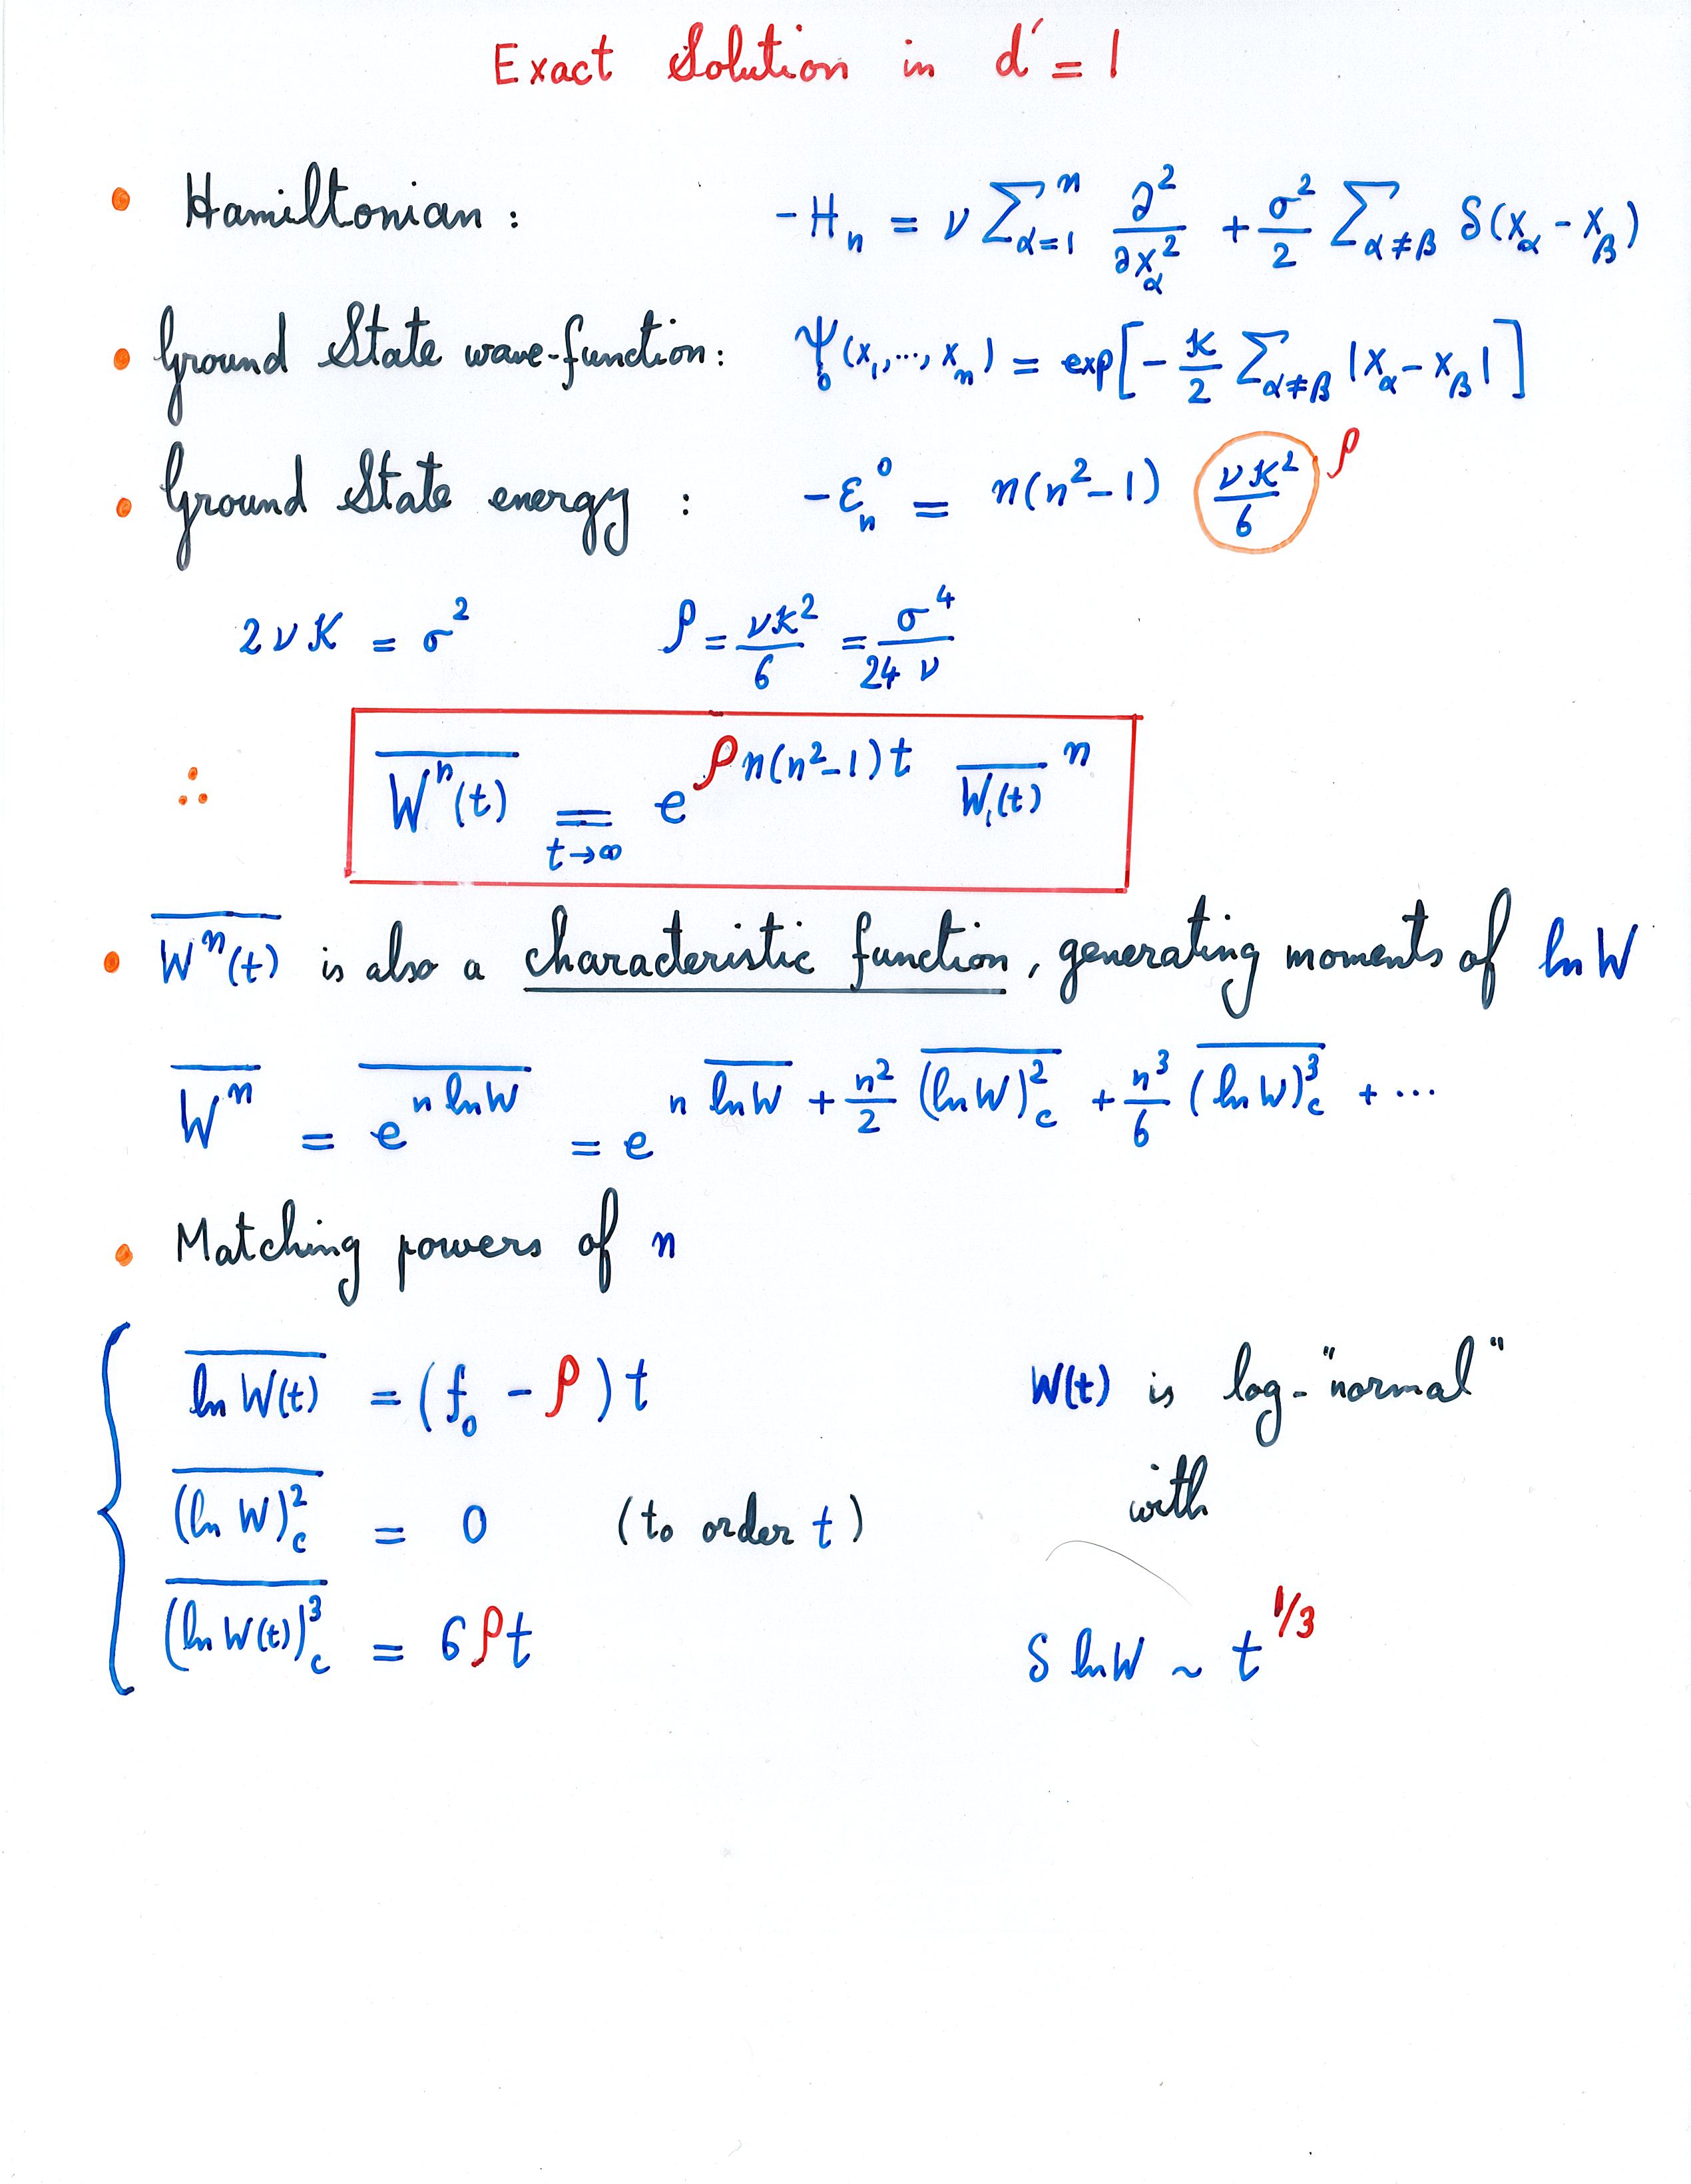 Exact Solution in d' = 1
• Hamiltonian : -H_n = ν Σ_{α=1}^n ∂²/∂x_α² + σ²/2 Σ_{α≠β} δ(x_α - x_β)
• Ground State wave-function: Ψ_0(x_1,..., x_n) = exp[-κ/2 Σ_{α≠β} |x_α - x_β|]
• Ground State energy : -ε_n^0 = n(n²-1) νκ²/6 ρ
2νκ = σ² ρ = νκ²/6 = σ⁴/24ν
∴ \overline{W^n(t)} =_{t→∞} e^{ρn(n²-1)t} \overline{W_1(t)}^n
• \overline{W^n(t)} is also a characteristic function, generating moments of ln W
\overline{W^n} = \overline{e^{n ln W}} = e^{n \overline{ln W} + n²/2 \overline{(ln W)_c^2} + n³/6 \overline{(ln W)_c^3} + ...}
• Matching powers of n
\overline{ln W(t)} = (f_0 - ρ)t W(t) is log-"normal"
\overline{(ln W)_c^2} = 0 (to order t) with
\overline{(ln W(t))_c^3} = 6ρt δ ln W ~ t^{1/3}